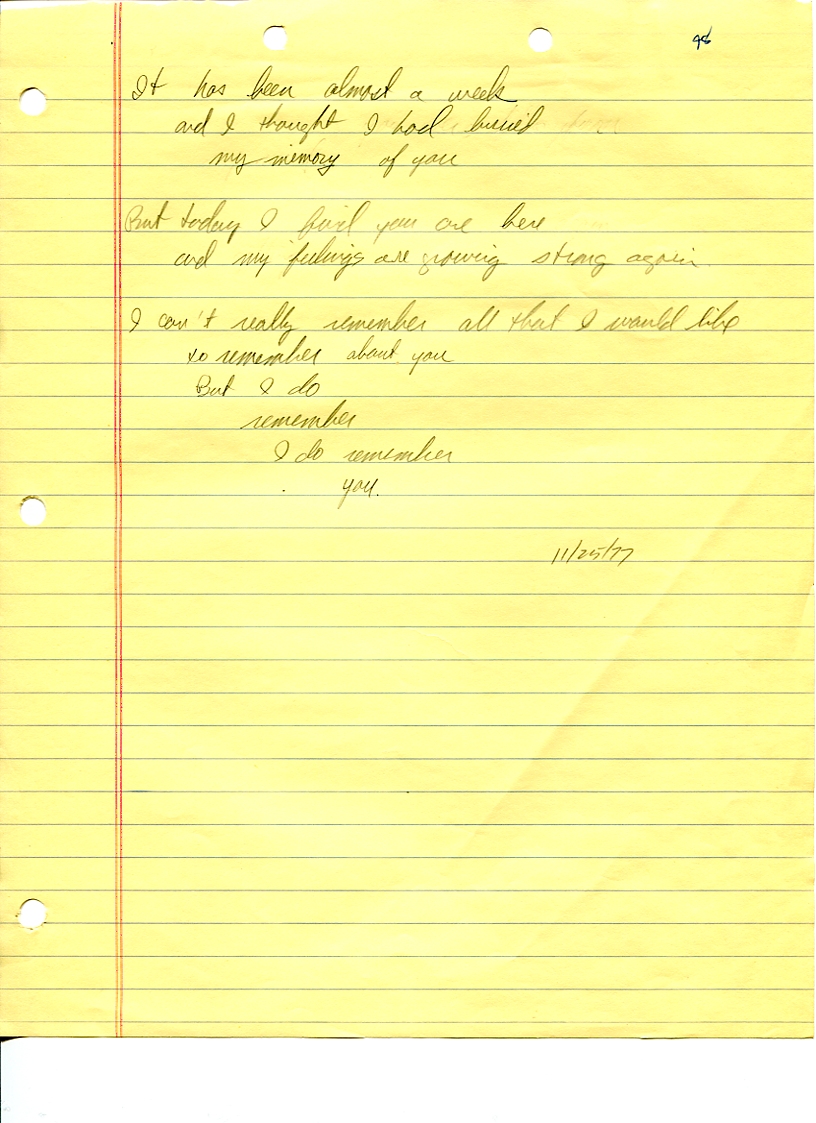 48
It has been almost a week
and I thought I had buried
my memory of you
But today I find you are here
and my feelings are growing strong again.
I can't really remember all that I would like
to remember about you
But I do
remember
I do remember
you.
11/25/77